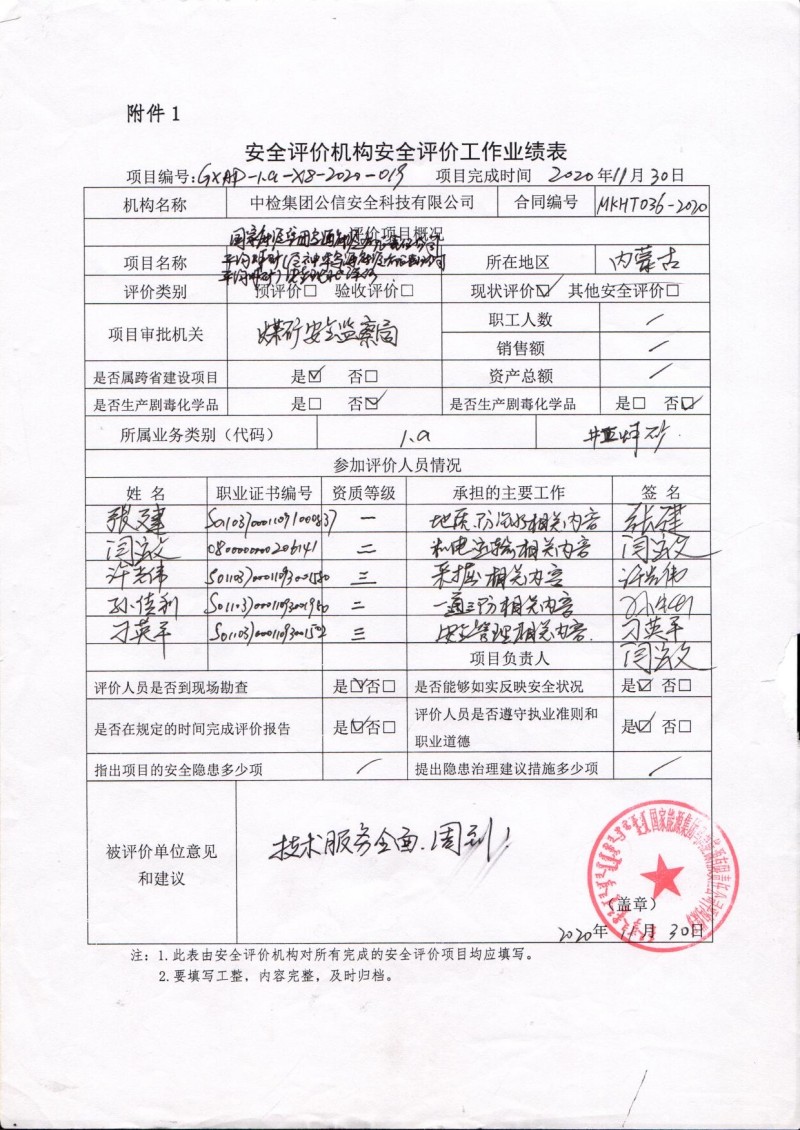 附件1
安全评价机构安全评价工作业绩表
项目编号:GXAP-1.a-XZ8-2020-019 项目完成时间 2020年11月30日
机构名称 中检集团公信安全科技有限公司 合同编号 MKHT036-2020
评价项目概况
项目名称 所在地区 内蒙古
评价类别 预评价□ 验收评价□ 现状评价☑ 其他安全评价□
项目审批机关 煤矿安全监察局 职工人数 /
销售额 /
是否属跨省建设项目 是☑ 否□ 资产总额 /
是否生产剧毒化学品 是□ 否☑ 是否生产剧毒化学品 是□ 否☑
所属业务类别（代码） 1.a 井工煤矿
参加评价人员情况
姓名 职业证书编号 资质等级 承担的主要工作 签名
张建 一 地质、防治水相关内容 张建
闫敏文 0800000000206141 二 机电运输相关内容 闫敏文
许光伟 三 采掘相关内容 许光伟
孙佳利 二 一通三防相关内容
刁英平 三 安全管理相关内容 刁英平
项目负责人 闫敏文
评价人员是否到现场勘查 是☑否□ 是否能够如实反映安全状况 是☑ 否□
是否在规定的时间完成评价报告 是☑否□ 评价人员是否遵守执业准则和
职业道德 是☑ 否□
指出项目的安全隐患多少项 / 提出隐患治理建议措施多少项 /
被评价单位意见
和建议
技术服务全面、周到！
（盖章）
2020年11月30日
注：1.此表由安全评价机构对所有完成的安全评价项目均应填写。
2.要填写工整，内容完整，及时归档。